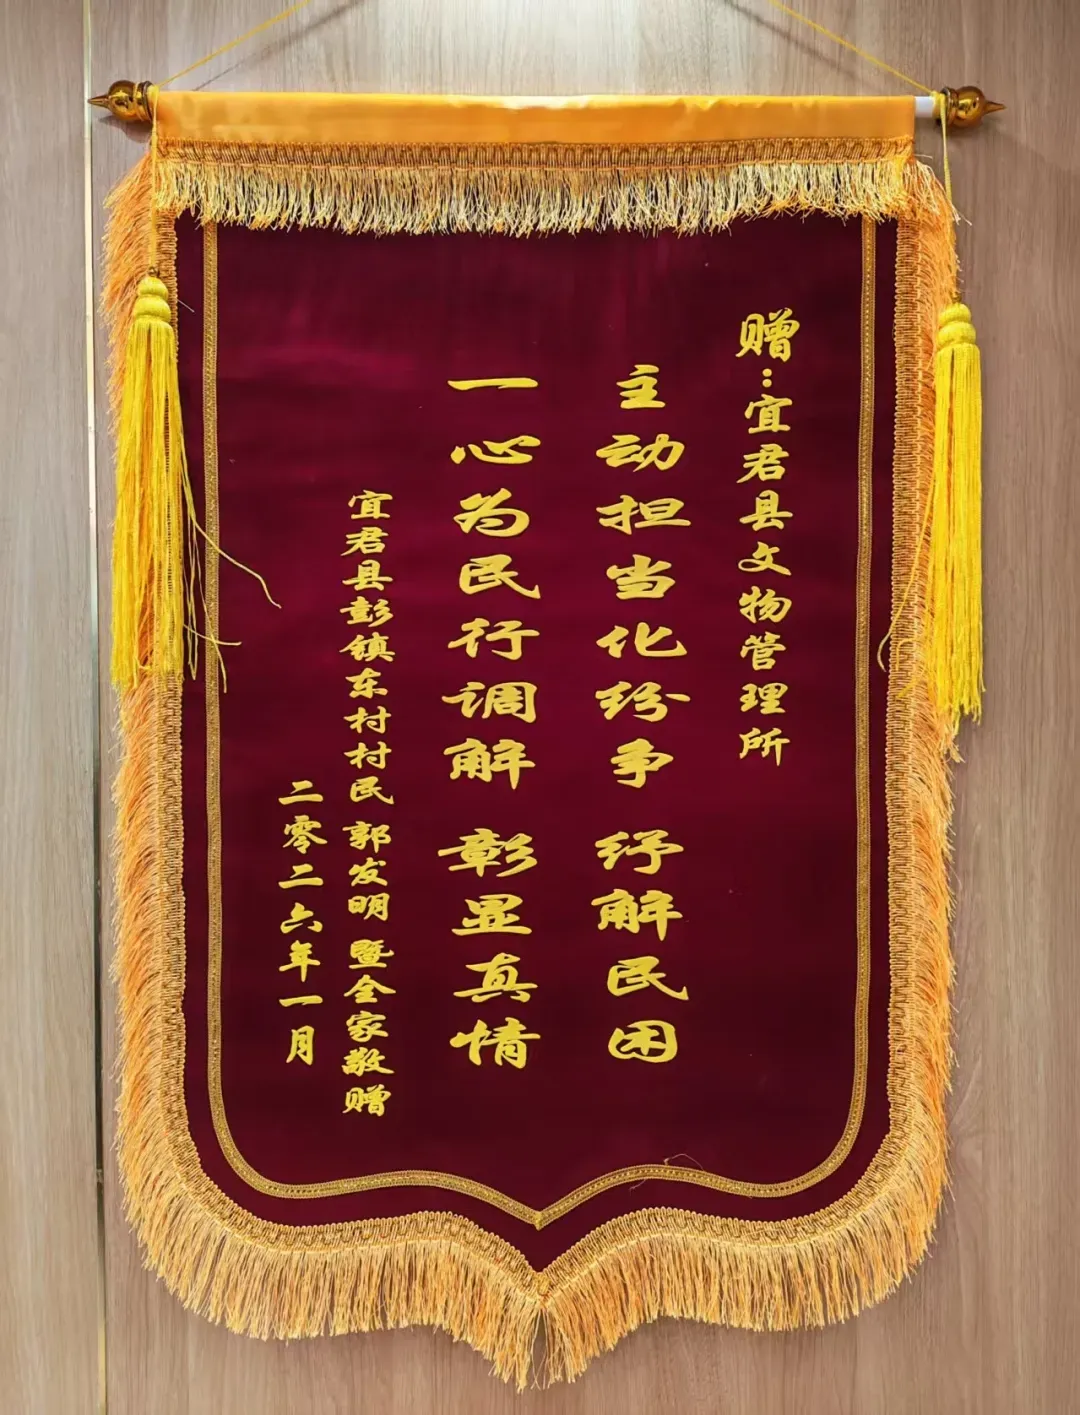 赠：宜君县文物管理所
主动担当化纷争 纾解民困
一心为民行调解 彰显真情
宜君县彭镇东村村民 郭发明 暨全家敬赠
二零二六年一月